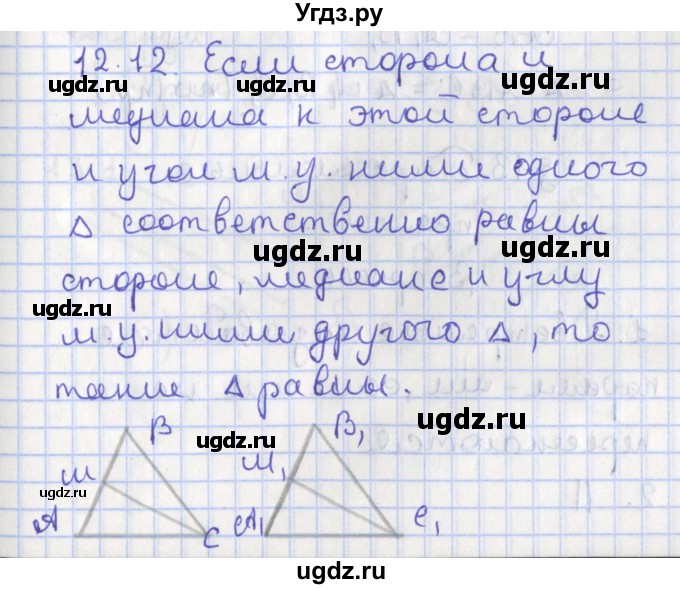 Угдз.ру
12.12. Если сторона и
медиана к этой стороне
и угол м.у. ними одного
Δ соответственно равны
стороне, медиане и углу
м.у. ними другого Δ, то
такие Δ равны.
B B₁
M M₁
A C A₁ C₁
ugdz.ru
ugdz.ru
ugdz.ru
ugdz.ru
ugdz.ru
ugdz.ru
ugdz.ru
ugdz.ru
ugdz.ru
ugdz.ru
ugdz.ru